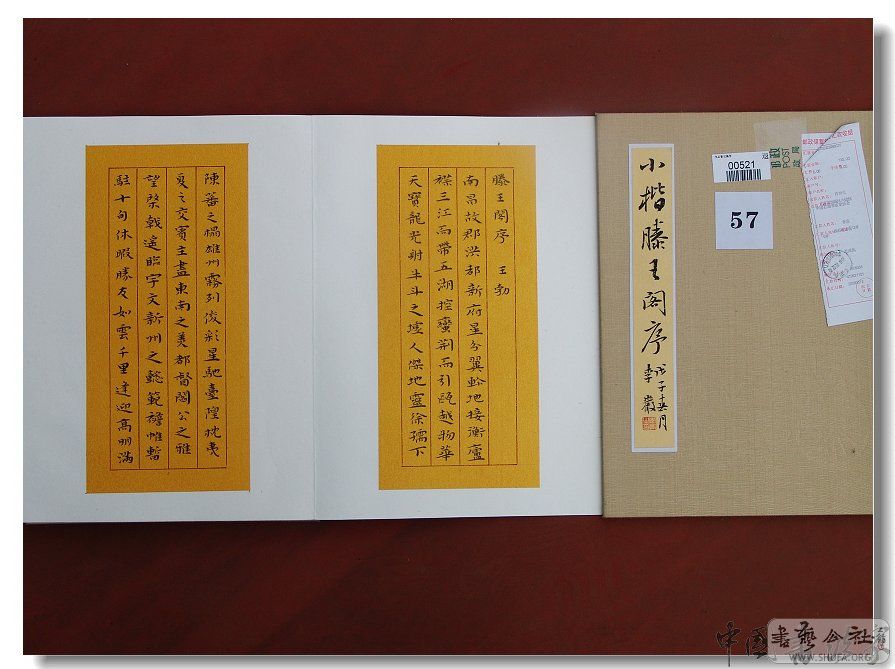 小楷滕王阁序
戊子春月
李巖
00521
57
POST
滕王阁序 王勃
南昌故郡洪都新府星分翼軫地接衡廬
襟三江而帶五湖控蠻荊而引甌越物華
天寶龍光射牛斗之墟人傑地靈徐孺下
陳蕃之榻雄州霧列俊彩星馳臺隍枕夷
夏之交賓主盡東南之美都督閻公之雅
望棨戟遙臨宇文新州之懿範襜帷暫
駐十旬休暇勝友如雲千里逢迎高朋滿
中国書藝公社
WWW.SHUFA.ORG